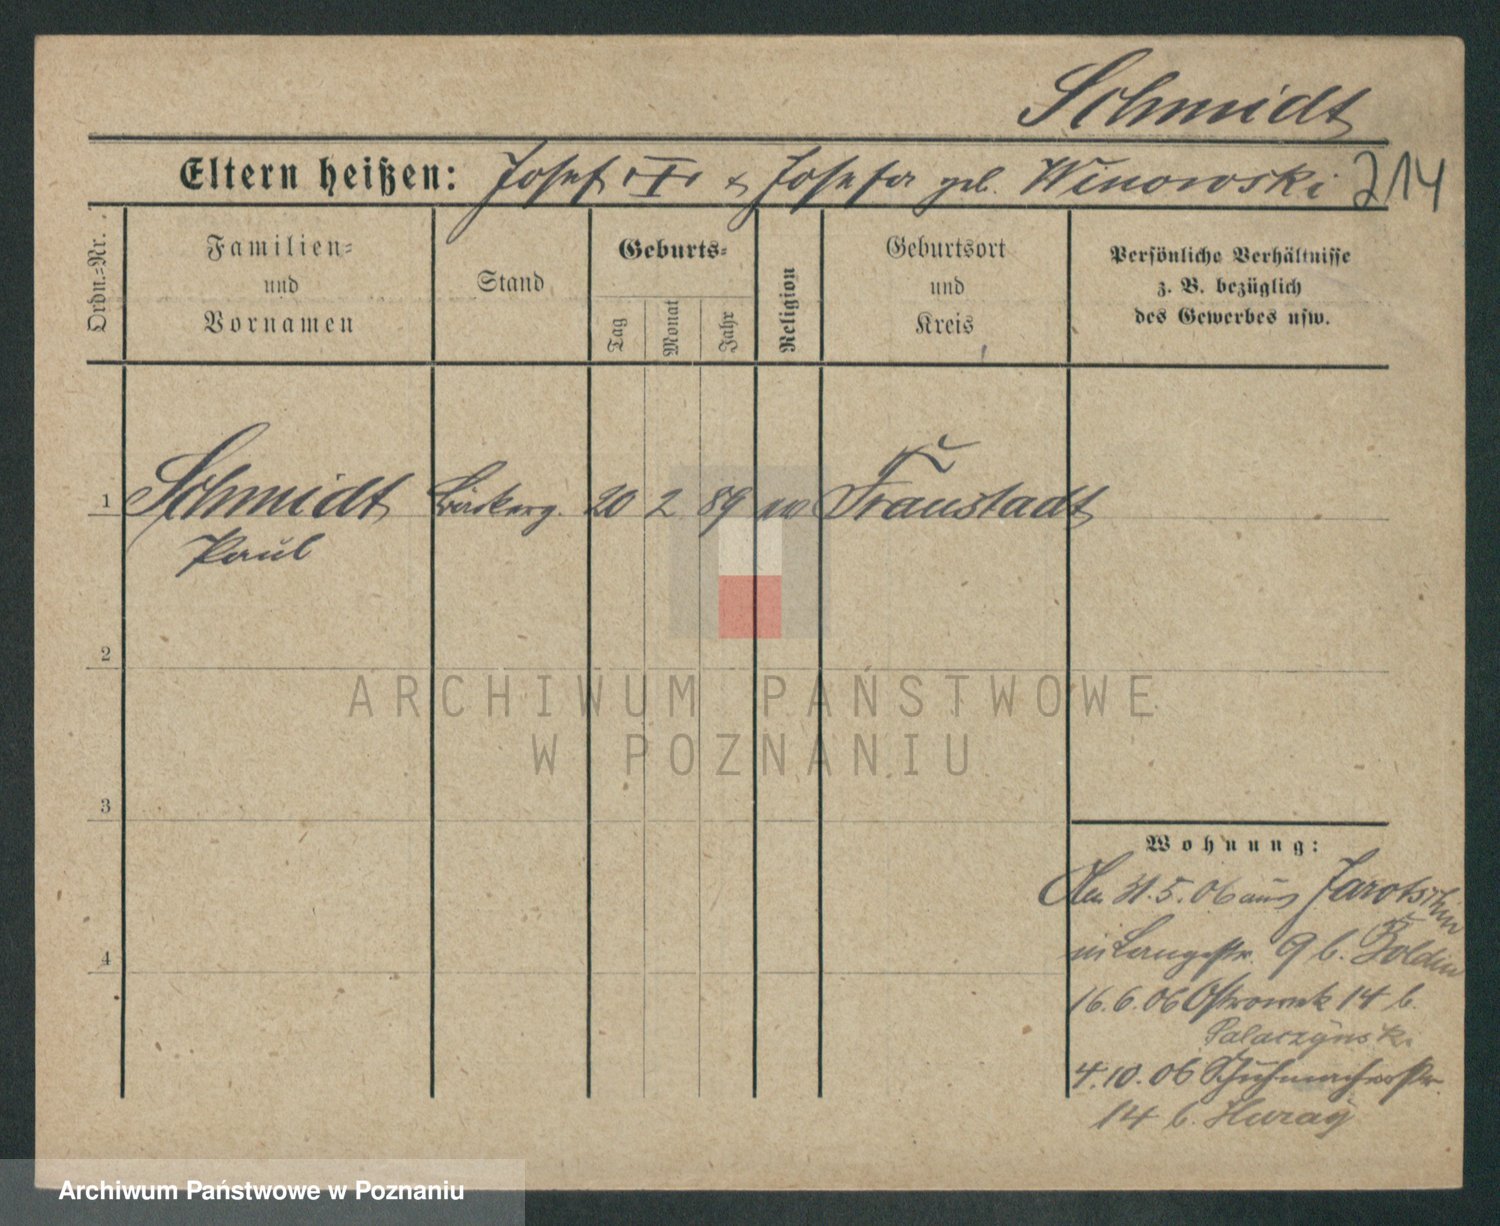 Schmidt
Eltern heißen: Josef I & Josefa geb. Winowski 214
Ordn.=Nr.
Familien=
und
Vornamen
Stand
Geburts=
Tag
Monat
Jahr
Religion
Geburtsort
und
Kreis
Persönliche Verhältnisse
z. B. bezüglich
des Gewerbes usw.
1 Schmidt 20 2 89 Fraustadt
Paul
2
ARCHIWUM PAŃSTWOWE
W POZNANIU
3
Wohnung:
31.5.06 aus Jarotschin
in Langestr. 9 b. Zoldin
4
16.6.06 Ostrowek 14 b.
Palaczynski
4.10.06 Schuhmacherstr.
14 b.
Archiwum Państwowe w Poznaniu